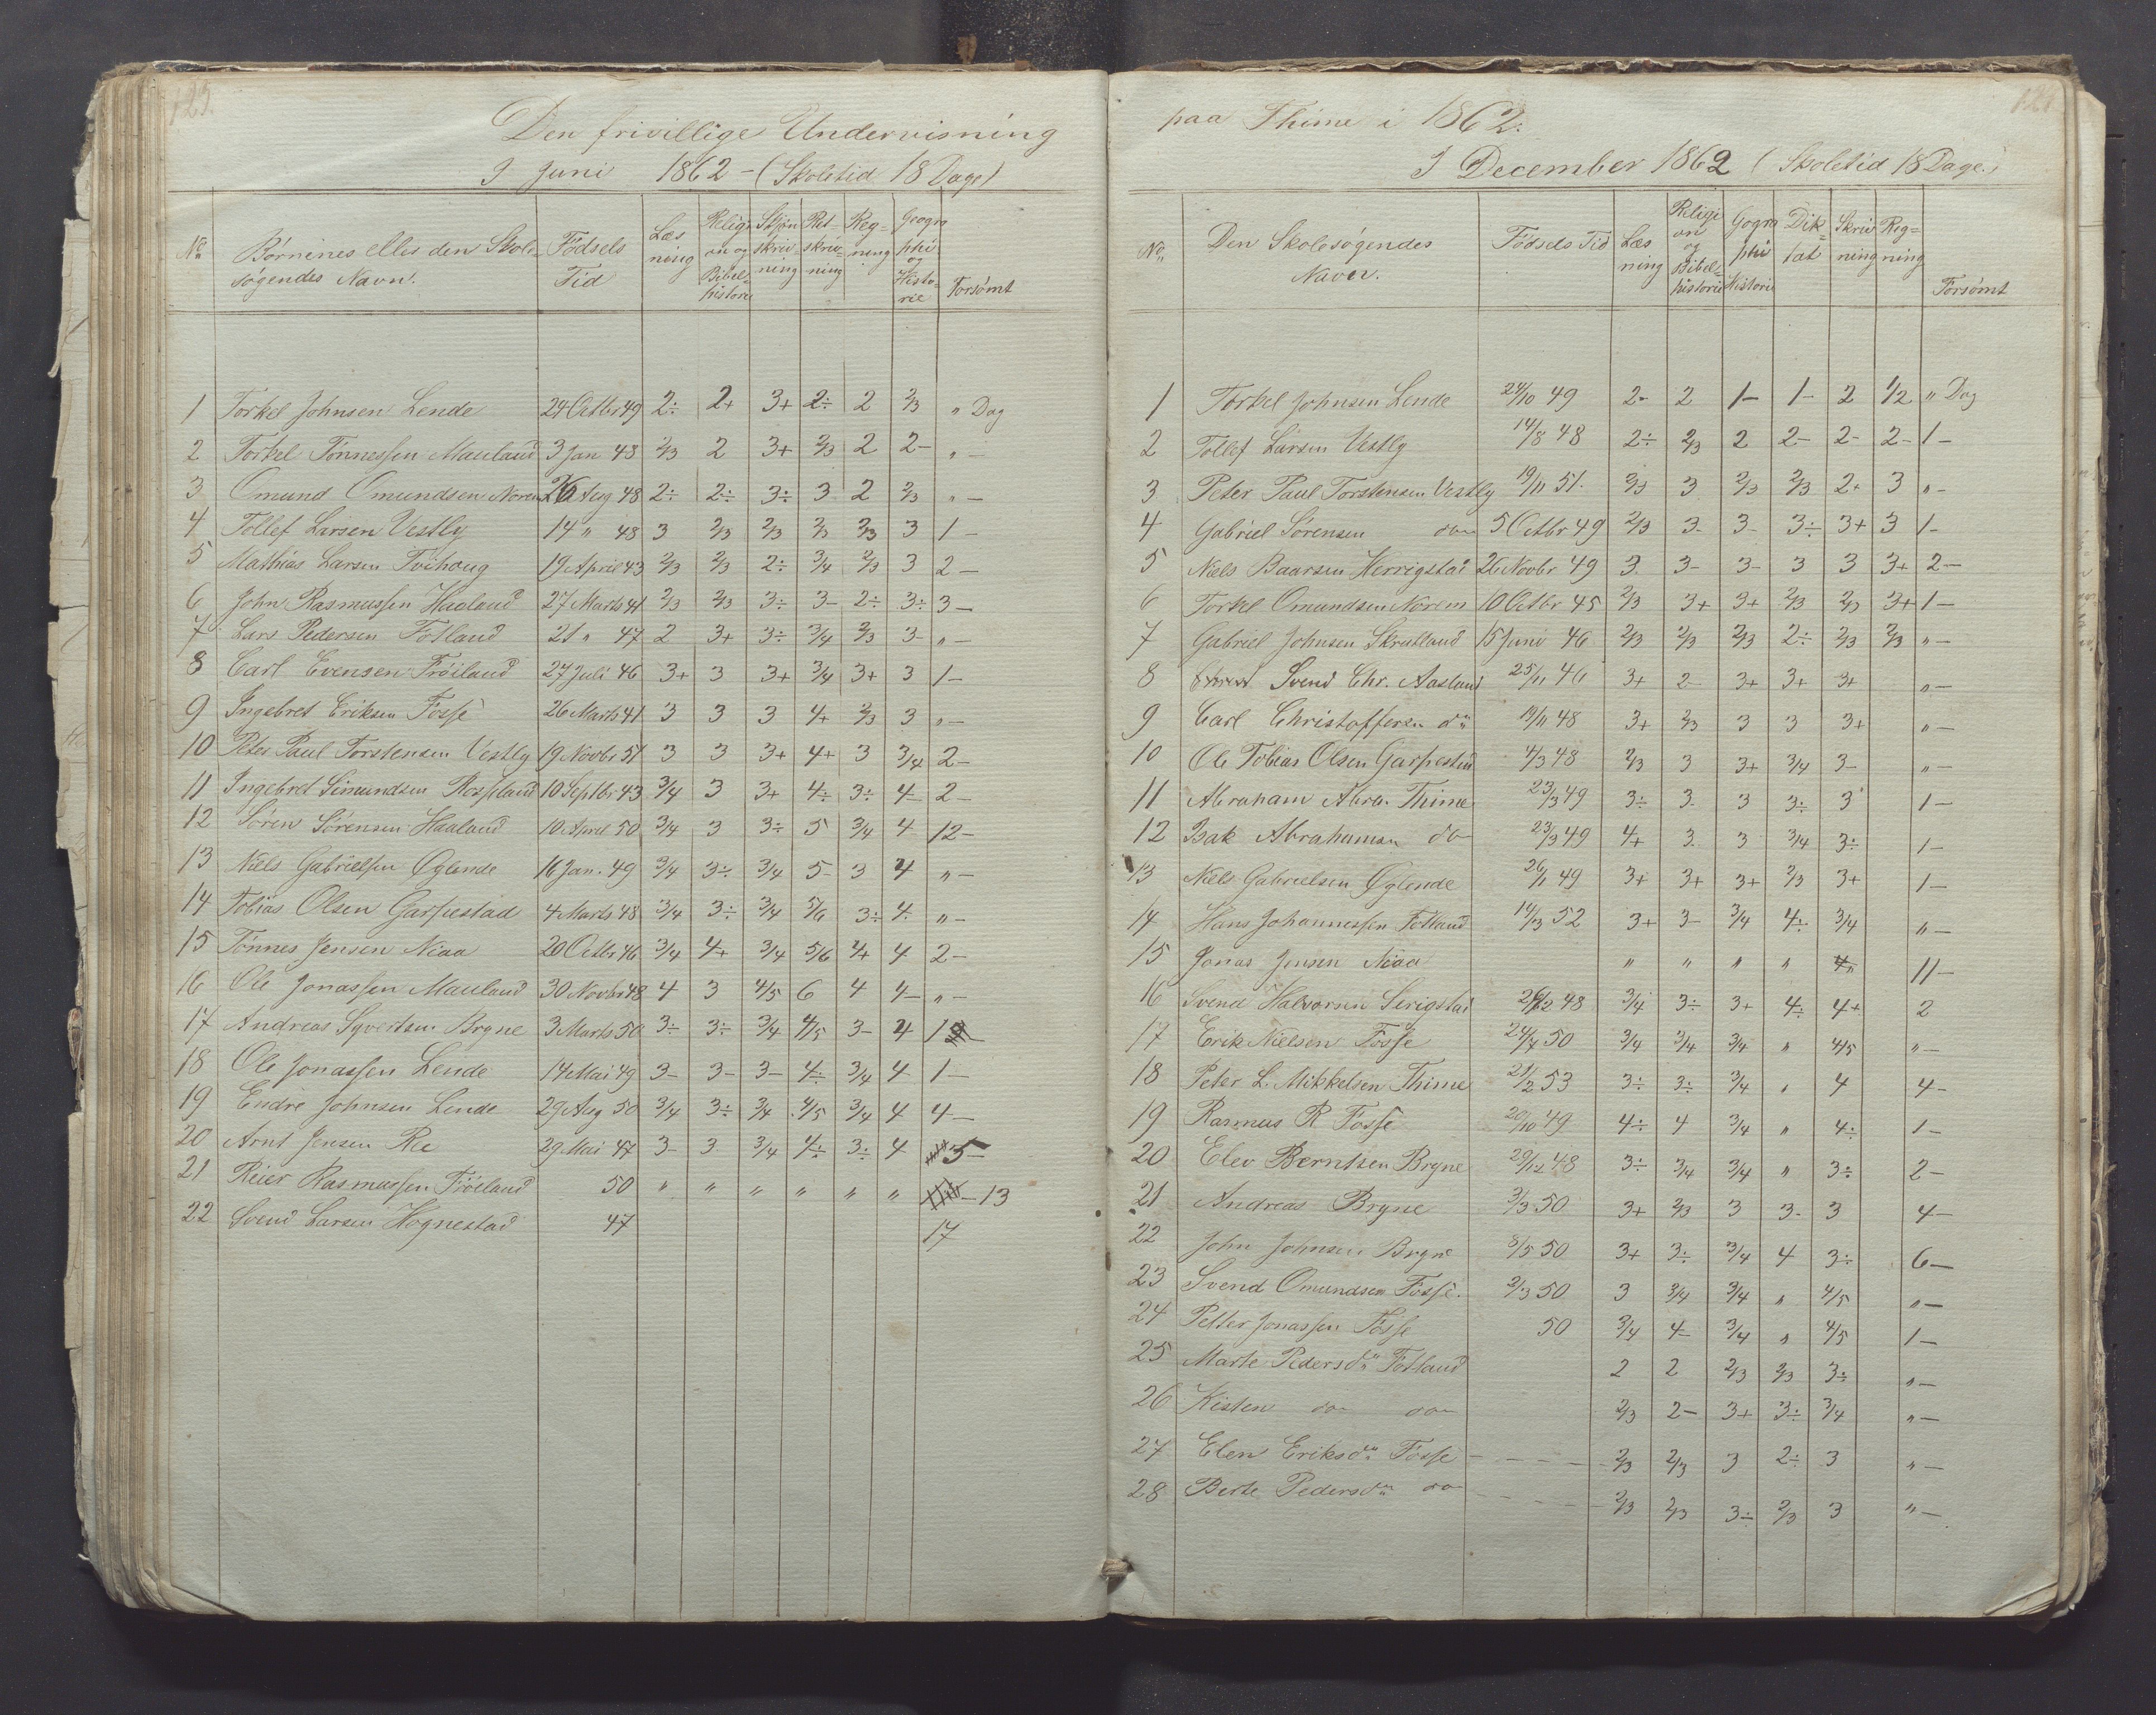 125.
Den frivillige Undervisning
I Juni 1862 - (Skoletid 18 Dage)
No Børnenes eller den Skole- Fødsels Læs Religi Skjøn Ret- Reg- Geogra
søgendes Navn. Tid ning on og skriv skriv- ning phi og
Bibel- ning ning Histo-
historie rie Forsømt
1 Torkel Johnsen Lende 24 Octbr 49 2÷ 2+ 3+ 2÷ 2 2/3 " Dag
2 Torkel Tønnessen Mauland 3 Jan 48 2/3 2 3+ 2/3 2 2- " -
3 Omund Omundsen Norem 26 Aug 48 2÷ 2÷ 3÷ 3 2 2/3 " -
4 Tollef Larsen Vestly 14 " 48 3 2/3 2/3 2/3 2/3 3 1 -
5 Mathias Larsen Tvihoug 19 April 43 2/3 2/3 2÷ 3/4 2/3 3 2 -
6 John Rasmussen Haaland 27 Marts 41 2/3 2/3 3÷ 3- 2÷ 3÷ 3 -
7 Lars Pedersen Fotland 21 " 47 2 3+ 3÷ 3/4 2/3 3- " -
8 Carl Evensen Frøiland 27 Juli 46 3+ 3 3+ 3/4 3+ 3 1 -
9 Ingebret Eriksen Fosse 26 Marts 41 3 3 3 4+ 2/3 3 " -
10 Peter Paul Torstensen Vestly 19 Novbr 51 3 3 3+ 4+ 3 3/4 2 -
11 Ingebret Simundsen Rosseland 10 Septbr 43 3/4 3 3+ 4÷ 3÷ 4- 2 -
12 Søren Sørensen Haaland 10 April 50 3/4 3 3÷ 5 3/4 4 12 -
13 Niels Gabrielsen Øglende 16 Jan. 49 3/4 3÷ 3/4 5- 3 4 " -
14 Tobias Olsen Garpestad 4 Marts 48 3/4 3÷ 3/4 5/6 3÷ 4- " -
15 Tønnes Jensen Niaa 20 Octbr 46 3/4 4+ 3/4 5/6 4+ 4 2 -
16 Ole Jonassen Mauland 30 Novbr 48 4 3 4/5 6 4 4- " -
17 Andreas Syvertsen Bryne 3 Marts 50 3÷ 3÷ 3/4 4/5 3- 4 1
18 Ole Jonassen Lende 14 Mai 49 3- 3- 3- 4÷ 3/4 4 1 -
19 Endre Johnsen Lende 29 Aug 50 3/4 3÷ 3/4 4/5 3/4 4 4 -
20 Arnt Jensen Ree 29 Mai 47 3- 3- 3/4 4÷ 3÷ 4 5 -
21 Reier Rasmussen Frøiland 50 " " " " " " - 13
22 Svend Larsen Hognestad 47 17
paa Thime i 1862.
I December 1862 (Skoletid 18 Dage.)
No Den Skolesøgendes Fødsels Tid Læs Religi Gogra Dik- Skriv Reg-
Navn. ning on og phi tat ning ning
Bibel-
historie Historie Forsømt
1 Torkel Johnsen Lende 24/10 49 2- 2 1- 1- 2 1/2 " Dag
2 Tollef Larsen Vestly 14/8 48 2÷ 2/3 2 2- 2- 2- 1 -
3 Peter Paul Torstensen Vestly 19/11 51. 2/3 3 2/3 2/3 2+ 3 " -
4 Gabriel Sørensen do 5 Octbr 49 2/3 3- 3- 3÷ 3+ 3 1 -
5 Niels Baarsen Herrigstad 26 Novbr 49 3 3- 3- 3 3 3+ 2 -
6 Torkel Omundsen Norem 10 Octbr 45 2/3 3+ 3+ 2/3 2/3 3+ 1 -
7 Gabriel Johnsen Skrutland 15 Juni 46 2/3 2/3 2/3 2÷ 2/3 2/3 " -
8 Svend Chr. Aasland 25/11 46 3+ 2- 3+ 3+ 3+ " -
9 Carl Christoffersen do 19/11 48 3+ 2/3 3 3 3+ " -
10 Ole Tobias Olsen Garpestad 4/3 48 2/3 3 3+ 3/4 3- " -
11 Abraham Abra. Thime 23/3 49 3÷ 3- 3 3÷ 3 1 -
12 Isak Abrahamsen do 23/3 49 4+ 3. 3 3/4 3÷ 1 -
13 Niels Gabrielsen Øglende 26/1 49 3+ 3+ 3+ 2/3 3+ 1 -
14 Hans Johannessen Fotland 14/3 52 3+ 3- 3/4 4÷ 3/4 " -
15 Jonas Jensen Niaa " " " " " 11 -
16 Svend Halvorsen Serigstad 26/12 48 3/4 3÷ 3+ 4÷ 4+ 2
17 Erik Nielsen Fosse 24/7 50 3/4 3/4 3/4 " 4/5 " -
18 Peter L. Mikkelsen Thime 21/2 53 3÷ 3÷ 3/4 " 4 4 -
19 Rasmus R Fosse 20/10 49 4÷ 4 3/4 " 4÷ 1 -
20 Elev Berntsen Bryne 29/12 48 3÷ 3/4 3/4 " 3÷ 2 -
21 Andreas Bryne 3/3 50 3+ 2/3 3 3- 3 4 -
22 John Johnsen Bryne 8/5 50 3+ 3÷ 3/4 4 3÷ 6 -
23 Svend Omundsen Fosse. 2/3 50 3 3/4 3/4 " 4/5 " -
24 Petter Jonassen Fosse 50 3/4 4- 3/4 " 4/5 1 -
25 Marte Pedersdr Fotland 2 2 2/3 2/3 3÷ " -
26 Kisten do do 2/3 2- 3+ 3÷ 3/4 " -
27 Elen Eriksdr Fosse - - - - 2/3 2/3 3 2÷ 3 " -
28 Berte Pedersdr do - - - - 2/3 2/3 3÷ 2/3 3 " -